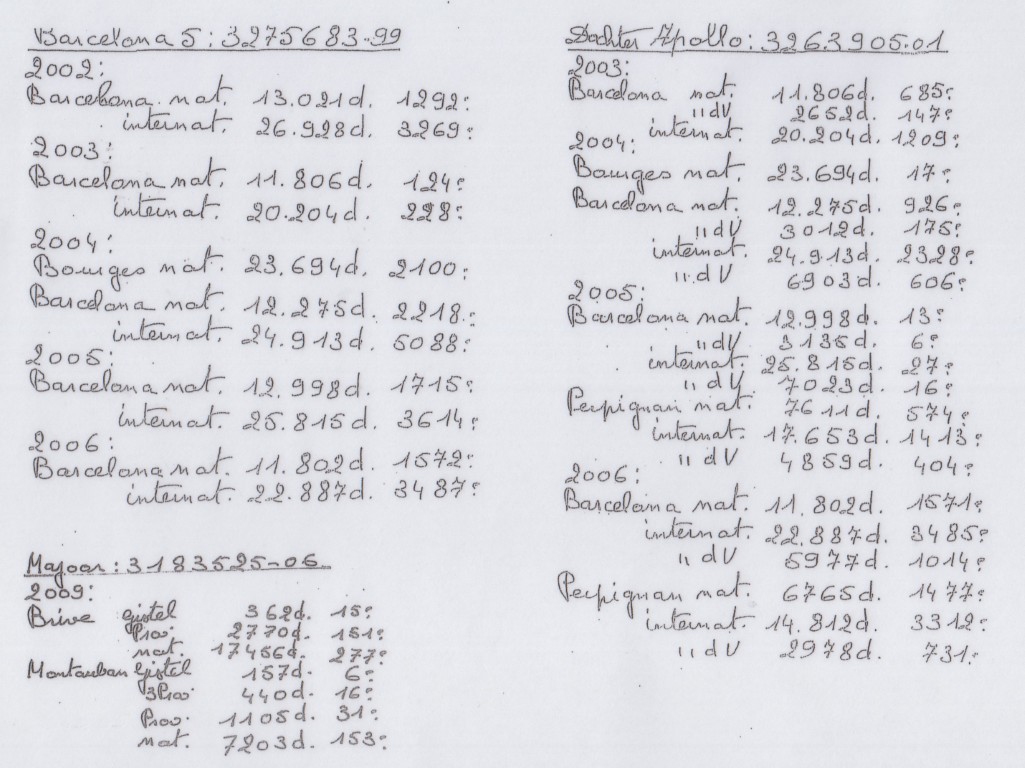 Barcelona 5: 3275683-99
2002:
Barcelona nat. 13.021d. 1292e
internat. 26.928d. 3269e
2003:
Barcelona nat. 11.806d. 124e
internat. 20.204d. 228e
2004:
Bourges nat. 23.694d. 2100e
Barcelona nat. 12.275d. 2218e
internat. 24.913d. 5088e
2005:
Barcelona nat. 12.998d. 1715e
internat. 25.815d. 3614e
2006:
Barcelona nat. 11.802d. 1572e
internat. 22.887d. 3487e
Majoor: 3183525-06
2009:
Brive Gistel 362d. 15e
Prov. 2770d. 151e
nat. 17456d. 277e
Montauban Gistel 157d. 6e
3Prov 440d. 16e
Prov. 1105d. 31e
nat. 7203d. 153e
Dochter Apollo: 3263905.01
2003:
Barcelona nat. 11.806d. 685e
"dV 2652d. 147e
internat. 20.204d. 1209e
2004:
Bourges nat. 23.694d. 17e
Barcelona nat. 12.275d. 926e
"dV 3012d. 175e
internat. 24.913d. 2328e
"dV 6903d. 606e
2005:
Barcelona nat. 12.998d. 13e
"dV 3135d. 6e
internat. 25.815d. 27e
"dV 7023d. 16e
Perpignan nat. 7611d. 574e
internat. 17.653d. 1413e
"dV 4859d. 404e
2006:
Barcelona nat. 11.802d. 1571e
internat. 22.887d. 3485e
"dV 5977d. 1014e
Perpignan nat. 6765d. 1477e
internat. 14.812d. 3312e
"dV 2978d. 731e